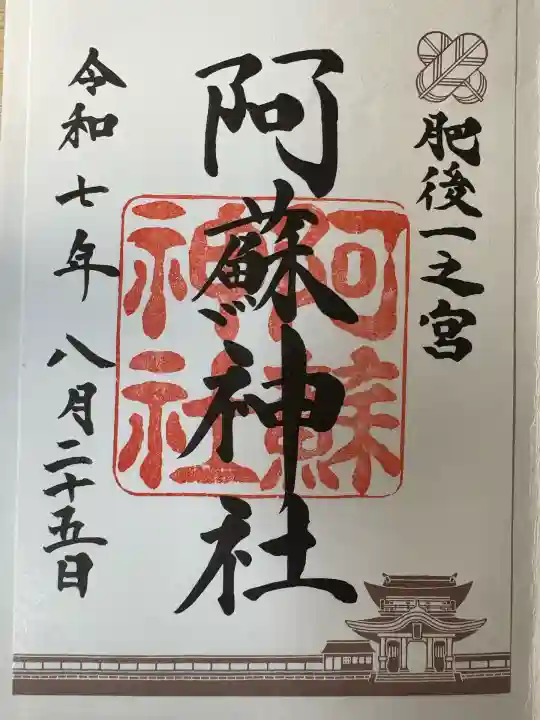 肥後一之宮
阿蘇神社
阿蘇神社
令和七年八月二十五日